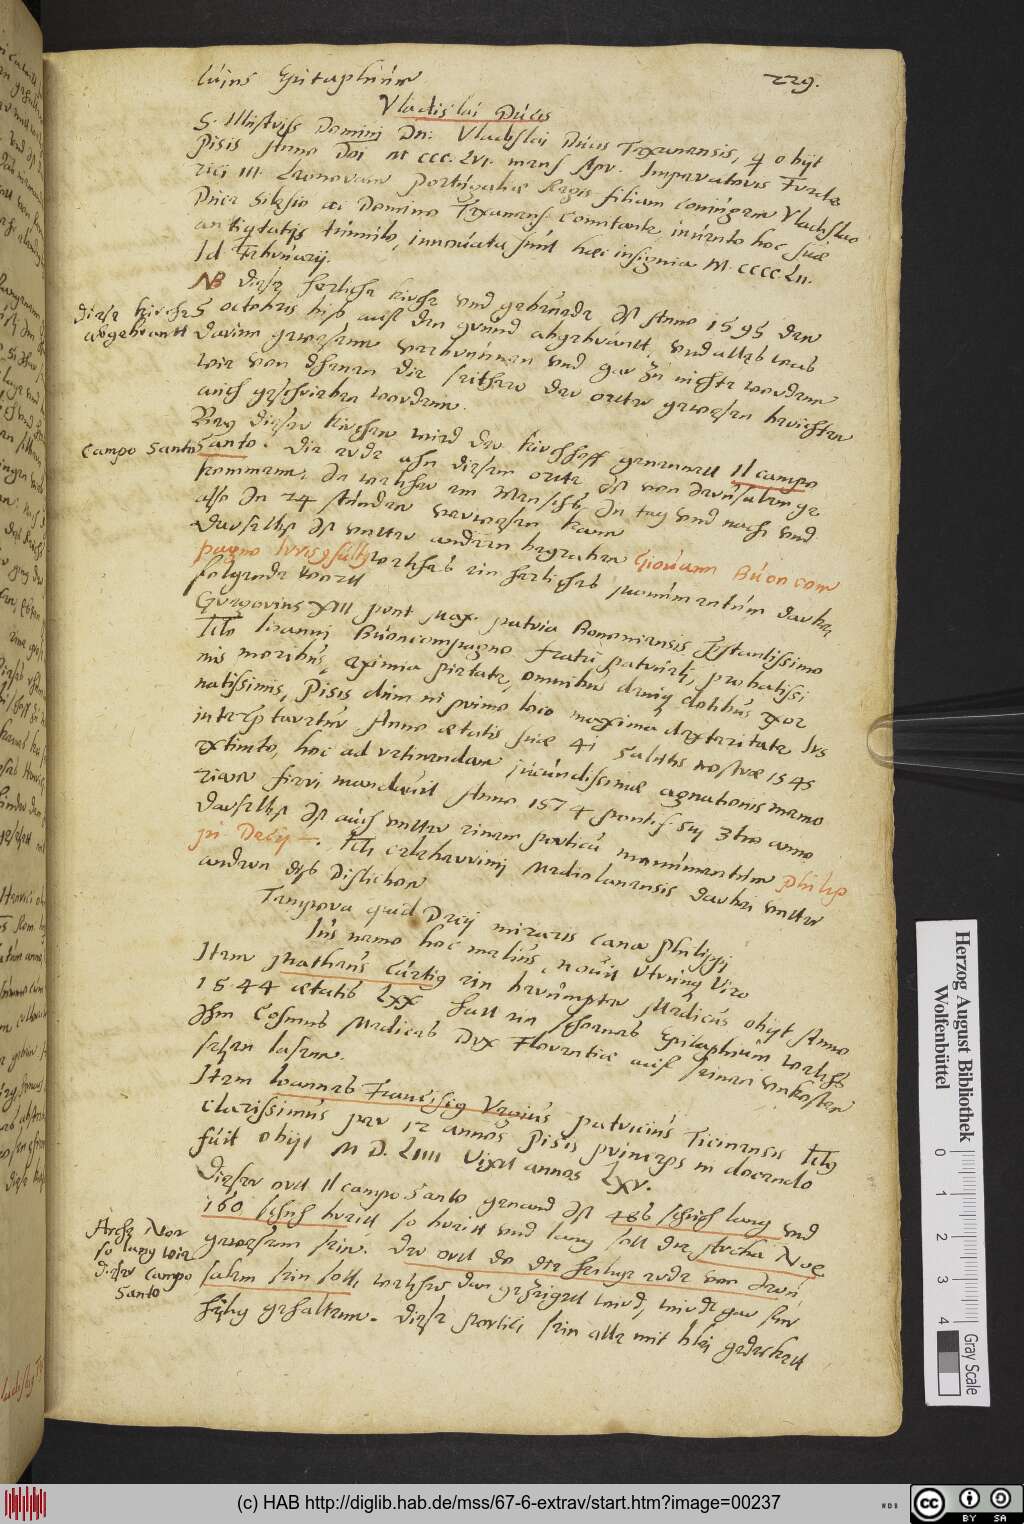 cuius Epitaphium
229.
Vladislai Ducis
S. Illustriss Domini Dn: Vladislai Ducis Texanensis, q obyt
Pisis Anno Doi M CCC. LVI. mens Apr. Imperatoris Frede
rici III. Leonoram Portugaliæ Regis filiam coniugem Vladislao
Duce Silesiæ ac Domino Texanens comitante, inuento hoc suæ
antiqtatis tumulo, innouata sunt hæc insignia M. CCCC LII.
Id Februarij.
NB diese herliche kirche vnd gebeude Ist Anno 1595 den
5 octobris biss auff den grund abgebrantt, vnd alles was
darinn gewesenn verbrunnen vnd gar zu nichte worden
wie von denen die seither der orttn gewesen berichtet
auch geschrieben worden.
Diese kirche
abgebrantt
Bey dieser kirchen wird der kirchhoff genennett Il campo
Santo. die erde ahn diesem ortte ist von Jerusalem ge
kommenn, In welcher ein Mensch, In tag vnd nacht vnd
also In 24 stunden verwesen kann
Campo Santo
Daselbst Ist vntter andern begraben Giouann Buon com
pagno Iurisconsult welches ein herliches monumentum darbei
folgende wortt
Gregorius XIII pont Max. patria Bononiensis Præstantissimo
Iohanni Buoncompagno fratri patrueli, probatissi
mis moribus, eximia pietate, omnibus denique dotibus exor
natissimis, Pisis dum in primo loco maxima dexteritate Ius
interpretaretur Anno ætatis suæ 41 Salutis nostræ 1545
extincto, hoc ad retinendam iucundissimæ agnationis memo
riam fieri mandauit Anno 1574 pontif. sui 3tio anno
Daselbst Ist auch vntter einem porticu monumentum Philip
pi Decij. Mediolanensis darbei vntter
andern dis Distichon
Tempora quid Decij miraris cana Philippi
Ius nemo hoc melius nouit Viro
Item Matheus Curtig ein berumpter Medicus obyt Anno
1544 ætatis LXX hatt ein schoenes Epitaphium welchs
Ihm Cosmus Medices Dux Florentiæ auf seinen vnkosten
setzen lassen.
Item Ioannes Franciscus patricius Ticinensis
clarissimus per 12 annos Pisis princeps in docendo
fuit obijt M D. LIIII Vixit annos LXV.
Dieser ortt Il campo Santo genand Ist 486 schuch lang vnd
160 schuch breitt so breitt vnd lang soll die Archa Noe
gewesenn sein. Der ortt do die heilige erde von Jeru
salem sein soll, welcher dan gezeigett wird, wirdt gar
heylig gehaltenn. Diese portici sein alle mit blei gedeckett
Arche Noe
so lang wie
dieser Campo
Santo
Herzog August Bibliothek
Wolfenbüttel
0 1 2 3 4
Gray Scale
(c) HAB http://diglib.hab.de/mss/67-6-extrav/start.htm?image=00237
WDB
cc BY SA